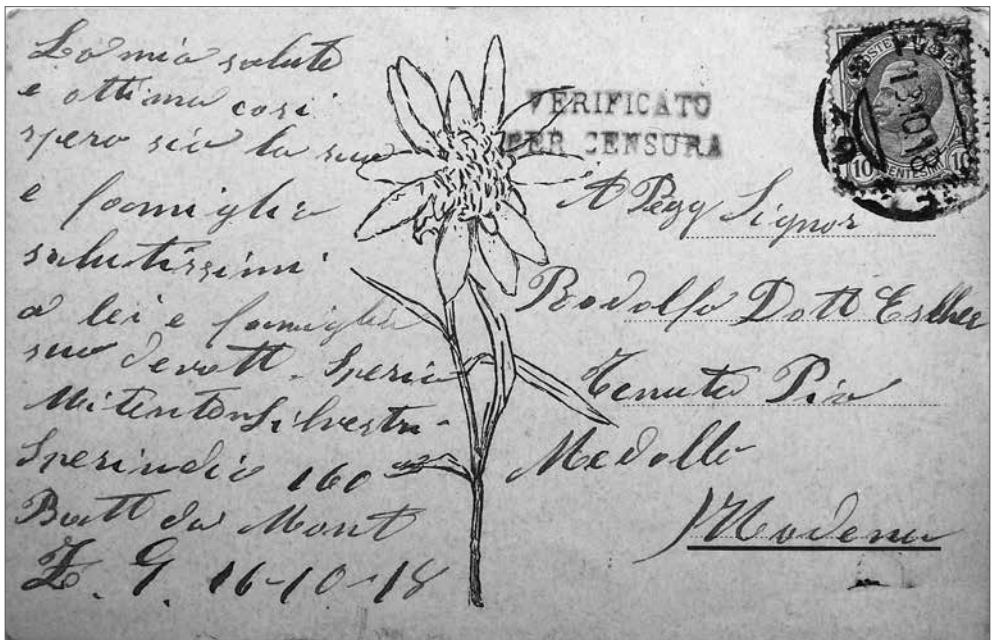 La mia salute
e ottima cosi
spero sia la sua
e famiglia
salutissimi
a lei e famiglia
suo devott. Speri
Mitente Silvestri
Sperindio 160
Batt da Mont
Z. G. 16-10-18
VERIFICATO
PER CENSURA
POSTE
10 CENTESIMI 10
A Pegg Signor
Rodolfo Dott
Tenuta Pia
Medolla
Modena